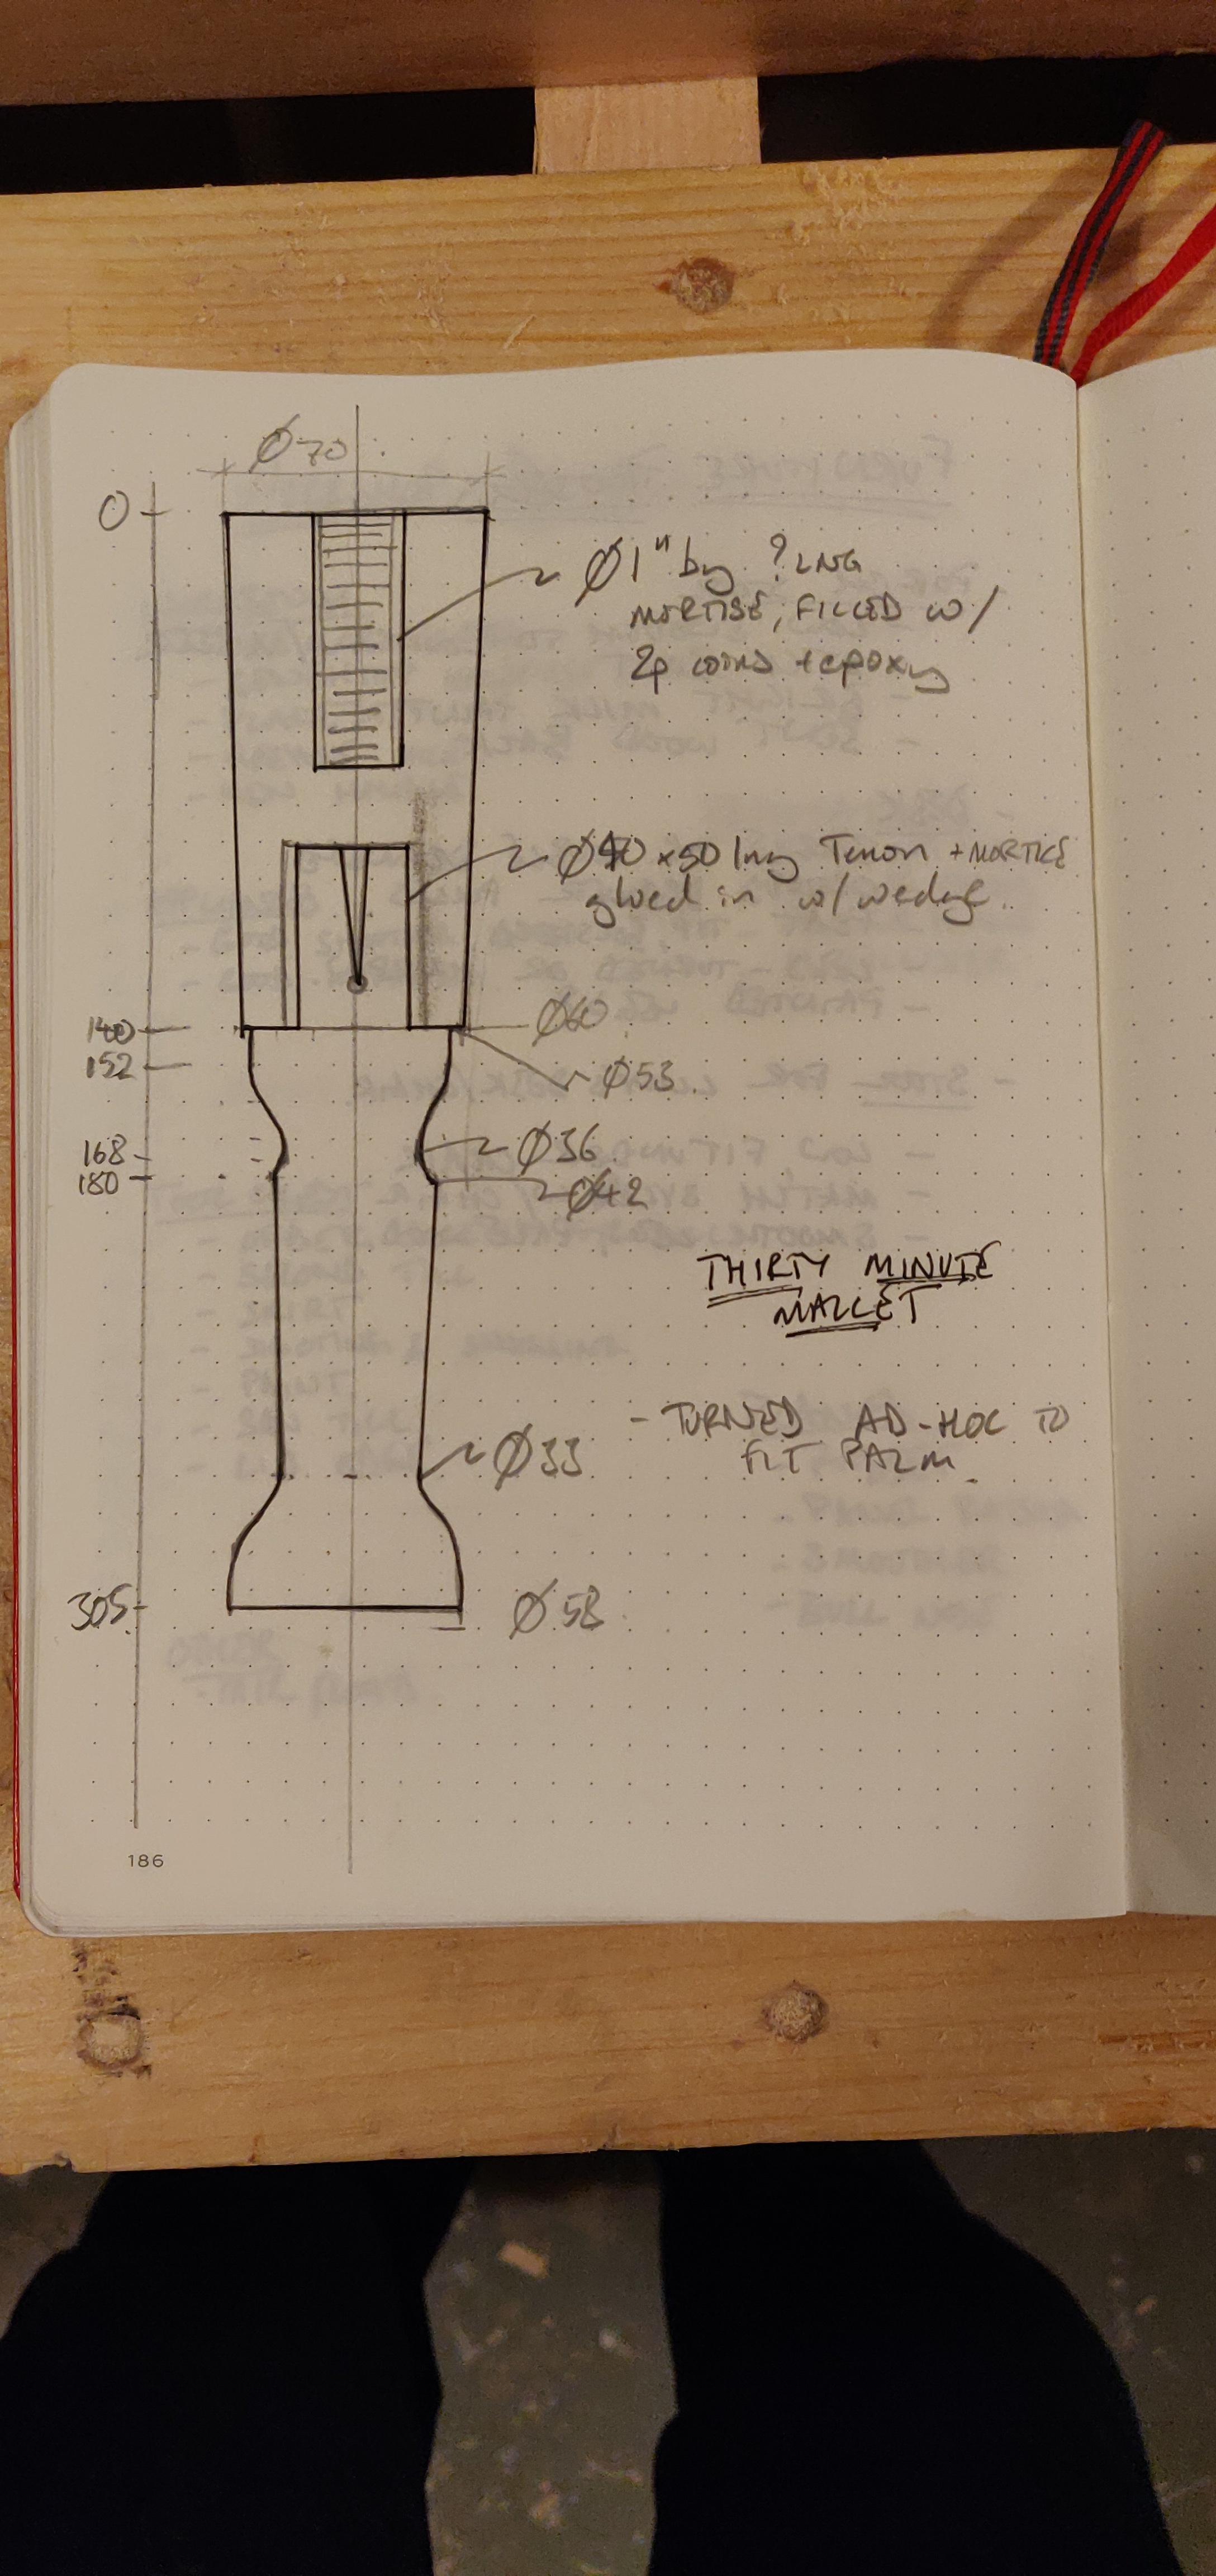 Ø70
0
Ø1" by ? LNG
MORTISE, FILLED W/
2p coins + epoxy
x50 long Tenon + MORTICE
glued in w/ wedge
140
Ø60
152
Ø53
168
Ø36
180
Ø42
THIRTY MINUTE
MALLET
- TURNED AD-HOC TO
FIT PALM
Ø33
305
Ø58
186